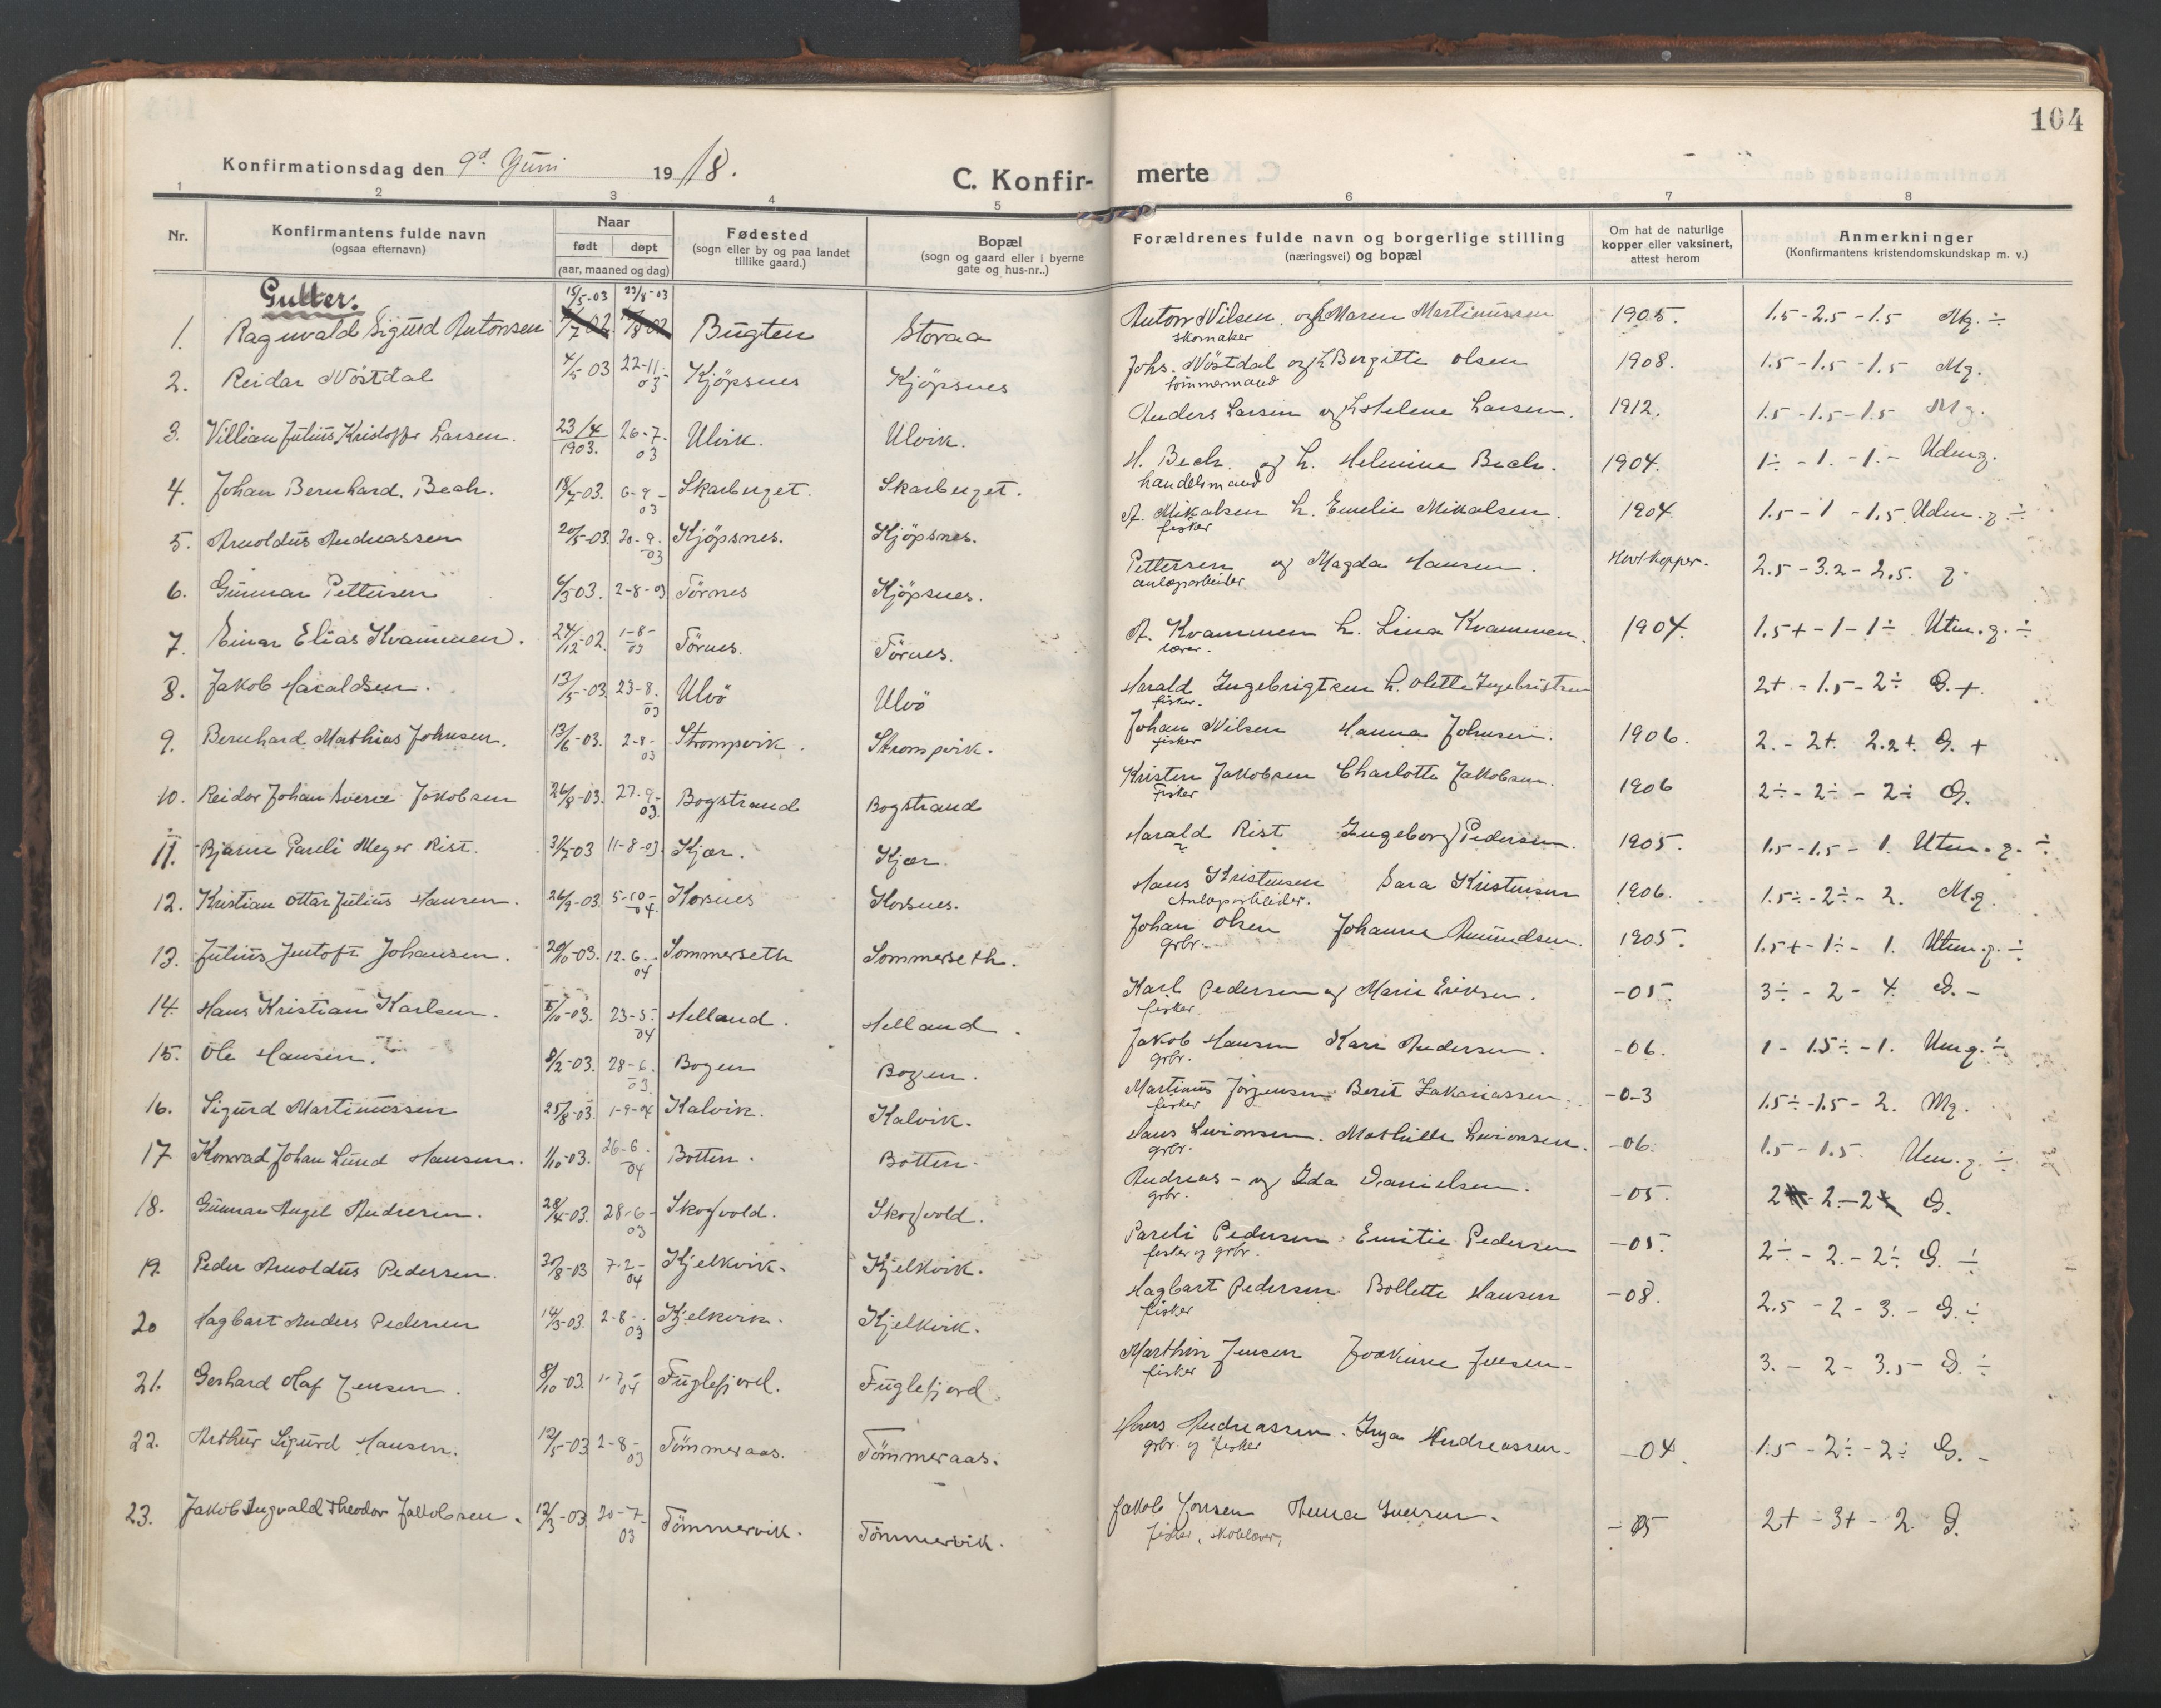 104
Konfirmationsdag den 9d Juni 1918.
C. Konfirmerte
1 2 3 4 5 6 7 8
Nr.
Konfirmantens fulde navn
(ogsaa efternavn)
Naar
født døpt
(aar, maaned og dag)
Fødested
(sogn eller by og paa landet
tillike gaard.)
Bopæl
(sogn og gaard eller i byerne
gate og hus-nr..)
Forældrenes fulde navn og borgerlige stilling
(næringsvei) og bopæl
Om hat de naturlige
kopper eller vaksinert,
attest herom
Anmerkninger
(Konfirmantens kristendomskundskap m. v.)
Gutter.
15/5-03 23/8-03
1. Ragnvald Sigurd Antonsen Bugten Storaa Anton Nilsen og h Maren Martinussen 1905. 1.5-2.5-1.5 Mg. ÷
skomaker
2. Reidar Nöstdal 4/5 03 22-11-03 Kjöpsnes Kjöpsnes Johs. Nöstdal og h Bergitte Olsen 1908. 1.5-1.5-1.5 Mg.
tömmermand
3. Villian Julius Kristoffer Larsen. 23/4 1903. 26-7-03 Ulvik. Ulvik. Anders Larsen og h Helene Larsen. 1912. 1.5-1.5-1.5 Mg.
4. Johan Bernhard. Bech. 18/7-03. 6-9-03 Skarberget. Skarberget. H. Bech. og h. Helmine Bech. 1904. 1÷-1.-1.- Udm.g.
handelsmand
5. Arnoldus Andreassen 20/5-03. 20-9-03 Kjöpsnes. Kjöpsnes. A. Mikalsen h. Emelie Mikalsen. 1904. 1.5-1-1.5 Udm.g. ÷
fisker
6. Gunnar Pettersen 6/5 03. 2-8-03 Törnes Kjöpsnes. Pettersen og Magda Hansen. Havt kopper. 2.5-3.2-2.5. g.
anlægsarbeider
7. Einar Elias Kvammen. 24/12-02. 1-8-03 Törnes. Törnes. A. Kvammen h. Lina Kvammen. 1904. 1.5+-1-1÷ Utm.g. ÷
lærer.
8. Jakob Haraldsen. 13/5-03. 23-8-03 Ulvö Ulvö Harald Ingebrigtsen h. Olette Ingebrigtsen 2+-1.5-2÷ G.+.
fisker.
9. Bernhard Mathias Johnsen. 13/6-03. 2-8-03 Strompvik. Strompvik. Johan Nilsen Hanna Johnsen. 1906. 2.-2+. 2.2+. G. +
fisker
10. Reidar Johan Sverre Jakobsen 26/8-03. 27-9-03. Bogstrand Bogstrand Kristen Jakobsen Charlotte Jakobsen. 1906 2÷-2÷-2÷ G.
Fisker
11. Bjarne Pareli Meyer Rist. 31/7-03 11-8-03. Kjær. Kjær. Harald Rist Ingeborg Pedersen. 1905. 1.5-1.5-1. Utm.g. ÷
12. Kristian Ottar Julius Hansen. 26/9-03. 5-10-04. Korsnes Korsnes. Hans Kristensen Sara Kristensen 1906. 1.5÷-2÷-2. Mg.
Anlægsarbeider.
13. Julius Jentoft Johansen. 20/10-03. 12.6.-04 Sommerseth Sommerseth. Johan Olsen Johanne Amundsen. 1905. 1.5+-1÷-1. Utm.g. ÷
grbr.
14. Hans Kristian Karlsen. /10-03. 23-5-04 Helland. Helland. Karl Pedersen og Marie Eriksen. -05. 3÷-2-4. G.-
fisker.
15. Ole Hansen. 8/2-03. 28-6-03. Bogen Bogen. Jakob Hansen Kari Andersen. -06. 1-1.5÷-1. Um g. ÷
grbr.
16. Sigurd Martinussen 25/8-03. 1-9-04 Kalvik. Kalvik. Martinus Jörgensen Berit Zakariassen. -03 1.5÷-1.5-2. Mg.
fisker
17 Konrad Johan Lund Hansen. 1/10-03. 26-6-04 Botten. Botten. Hans Sivionsen. Mathilde Sivionsen. -06. 1.5-1.5. Um.g. ÷
grbr.
18. Gunnar Angel Andresen. 28/4-03. 28-6-03 Skogvold. Skogvold. Andreas - og Ida Danielsen. -05. 2-2-2 G.
grbr.
19. Peder Arnoldus Pedersen. 30/8-03 7-2-04 Kjelkvik. Kjelkvik. Pareli Pedersen Emilie Pedersen -05. 2÷-2.-2÷ G. ÷
fisker og grbr.
20 Hagbart Anders Pedersen 14/3-03. 2-8-03 Kjelkvik. Kjelkvik. Hagbart Pedersen Bollette Hansen -08. 2.5-2-3.- G.÷
fisker
21. Gerhard Olaf Jensen. 8/10-03. 1-7-04 Fuglefjord. Fuglefjord Marthin Jensen Joakime Jensen- 3.-2-3.5- G. ÷
fisker
22. Arthur Sigurd Hansen. 12/5-03 2-8-03 Tömmeraas. Tömmeraas. Hans Andreassen. Inga Andreassen- -04. 1.5-2÷-2÷ G.-
grbr. og fisker
23. Jakob Ingvald Theodor Jakobsen. 12/3-03 20-7-03 Tömmervik. Tömmervik. Jakob Jonsen Anna -05 2+-3+-2. G.
fisker,